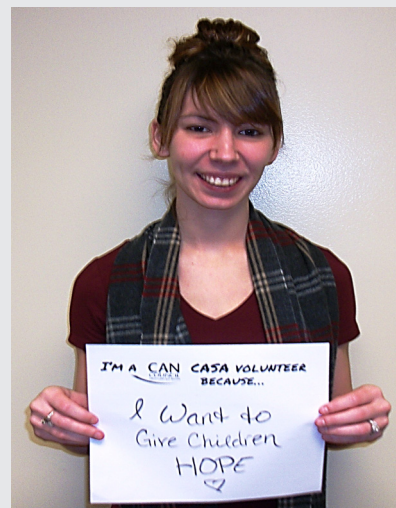 I'M A CAN CASA VOLUNTEER
BECAUSE...
I Want to
Give Children
HOPE